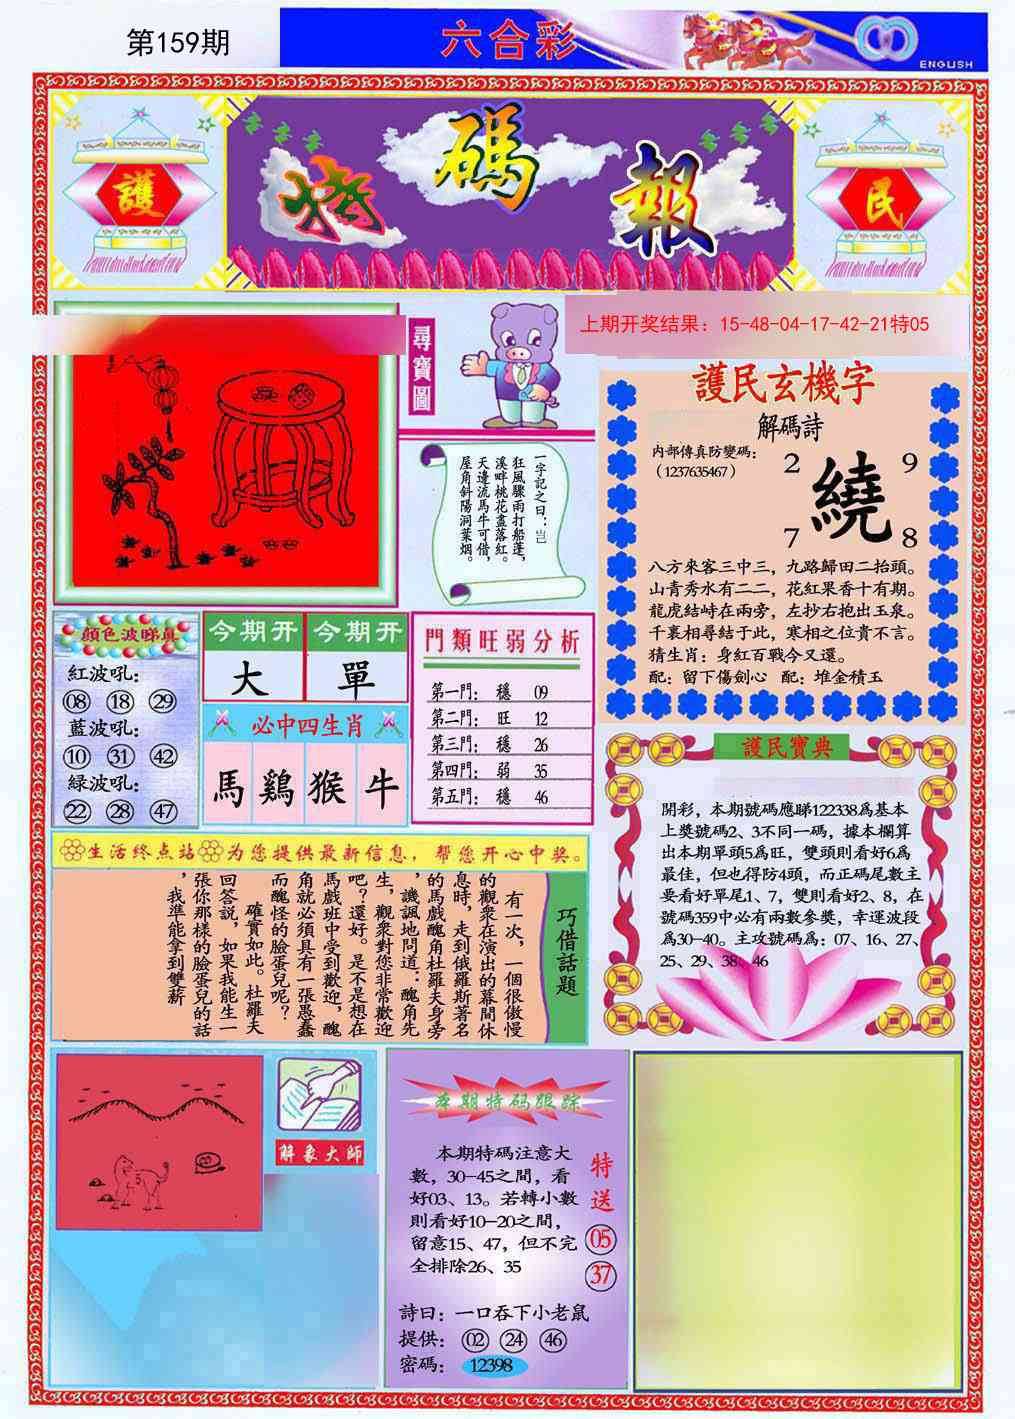 第159期
六合彩
ENGLISH
護
特碼報
民
上期开奖结果：15-48-04-17-42-21特05
尋寶圖
一字記之曰：岂
狂風驟雨打船蓬，
溪畔桃花盡落紅。
天邊流馬牛可借，
屋角斜陽洞葉烟。
護民玄機字
解碼詩
内部傳真防變碼：
（1237635467）
2
9
繞
7
8
八方來客三中三，九路歸田二抬頭。
山青秀水有二二，花紅果香十有期。
龍虎結峙在兩旁，左抄右抱出玉泉。
千裏相尋結于此，寒相之位貴不言。
猜生肖：身紅百戰今又還。
配：留下傷劍心　配：堆金積玉
顔色波睇真
紅波吼：
08 18 29
藍波吼：
10 31 42
緑波吼：
22 28 47
今期开 今期开
大 單
必中四生肖
馬 鷄 猴 牛
門類旺弱分析
第一門： 穩 09
第二門： 旺 12
第三門： 穩 26
第四門： 弱 35
第五門： 穩 46
護民寶典
開彩，本期號碼應睇122338爲基本
上獎號碼2、3不同一碼，據本欄算
出本期單頭5爲旺，雙頭則看好6爲
最佳，但也得防4頭，而正碼尾數主
要看好單尾1、7，雙則看好2、8，在
號碼359中必有兩數參獎，幸運波段
爲30-40。主攻號碼爲：07、16、27、
25、29、38、46
生活终点站 为您提供最新信息，帮您开心中奖。
巧借話題
有一次，一個很傲慢
的觀衆在演出的幕間休
息時，走到俄羅斯著名
的馬戲醜角杜羅夫身旁
，譏諷地問道：醜角先
生，觀衆對您非常歡迎
吧？還好。是不是想在
馬戲班中受到歡迎，醜
角就必須具有一張愚蠢
而醜怪的臉蛋兒呢？
確實如此。杜羅夫
回答説，如果我能生一
張你那樣的臉蛋兒的話
，我準能拿到雙薪
解象大師
本期特码跟踪
本期特碼注意大
數，30-45之間，看
好03、13。若轉小數
則看好10-20之間，
留意15、47，但不完
全排除26、35
特送
05
37
詩曰：一口吞下小老鼠
提供：02 24 46
密碼：12398